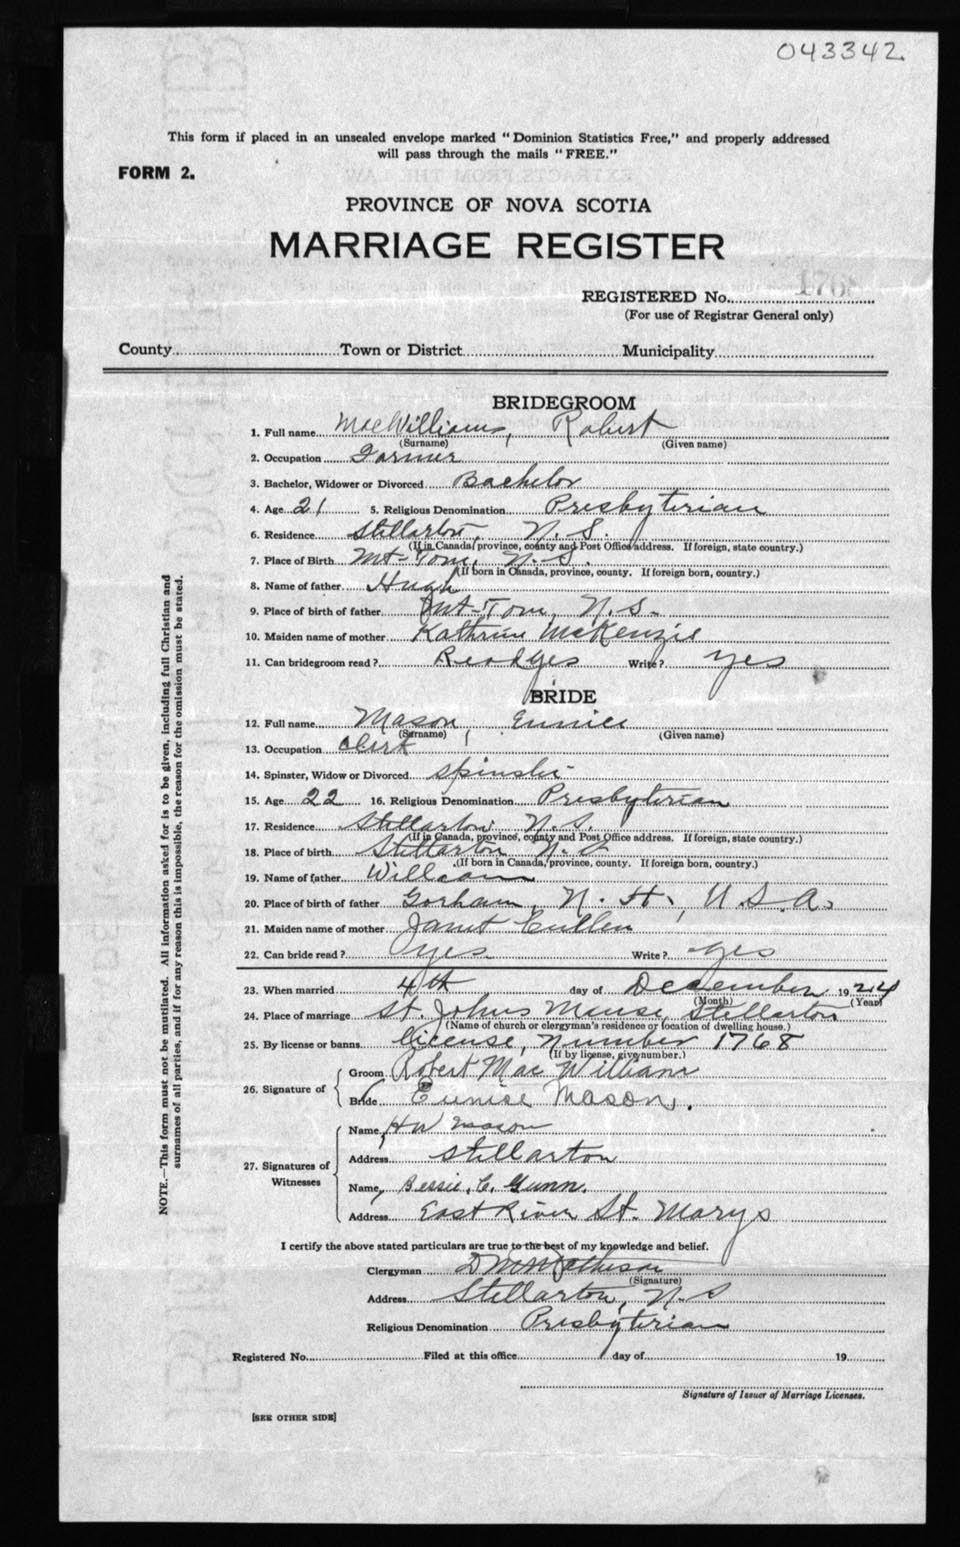 043342.
This form if placed in an unsealed envelope marked "Dominion Statistics Free," and properly addressed
will pass through the mails "FREE."
FORM 2.
PROVINCE OF NOVA SCOTIA
MARRIAGE REGISTER
REGISTERED No. 1768
(For use of Registrar General only)
County Town or District Municipality
BRIDEGROOM
1. Full name MacWilliams, Robert
(Surname) (Given name)
2. Occupation Farmer
3. Bachelor, Widower or Divorced Bachelor
4. Age 21 5. Religious Denomination Presbyterian
6. Residence Stellarton, N.S.
(If in Canada, province, county and Post Office address. If foreign, state country.)
7. Place of Birth Mt-Tom, N.S.
(If born in Canada, province, county. If foreign born, country.)
8. Name of father Hugh
9. Place of birth of father Mt-Tom, N.S.
10. Maiden name of mother Kathrine McKenzie
11. Can bridegroom read? Read yes Write? yes
BRIDE
12. Full name Mason, Eunice
(Surname) (Given name)
13. Occupation Clerk
14. Spinster, Widow or Divorced Spinster
15. Age 22 16. Religious Denomination Presbyterian
17. Residence Stellarton N.S.
(If in Canada, province, county and Post Office address. If foreign, state country.)
18. Place of birth Stellarton N.S
(If born in Canada, province, county. If foreign born, country.)
19. Name of father William
20. Place of birth of father Gorham, N.H., U.S.A.
21. Maiden name of mother Janet Cullen
22. Can bride read? yes Write? yes
23. When married 4th day of December 1924
(Month) (Year)
24. Place of marriage St. Johns Manse, Stellarton
(Name of church or clergyman's residence or location of dwelling house.)
25. By license or banns license, number 1768
(If by license, give number.)
26. Signature of Groom Robert MacWilliam
Bride Eunice Mason.
27. Signatures of Witnesses
Name, H W Mason
Address Stellarton
Name, Bessie. C. Gunn.
Address East River St. Marys
I certify the above stated particulars are true to the best of my knowledge and belief.
Clergyman D M Matheson
(Signature)
Address Stellarton, N.S
Religious Denomination Presbyterian
Registered No. Filed at this office day of 19
Signature of Issuer of Marriage Licenses.
[SEE OTHER SIDE]
NOTE.—This form must not be mutilated. All information asked for is to be given, including full Christian and
surnames of all parties, and if for any reason this is impossible, the reason for the omission must be stated.